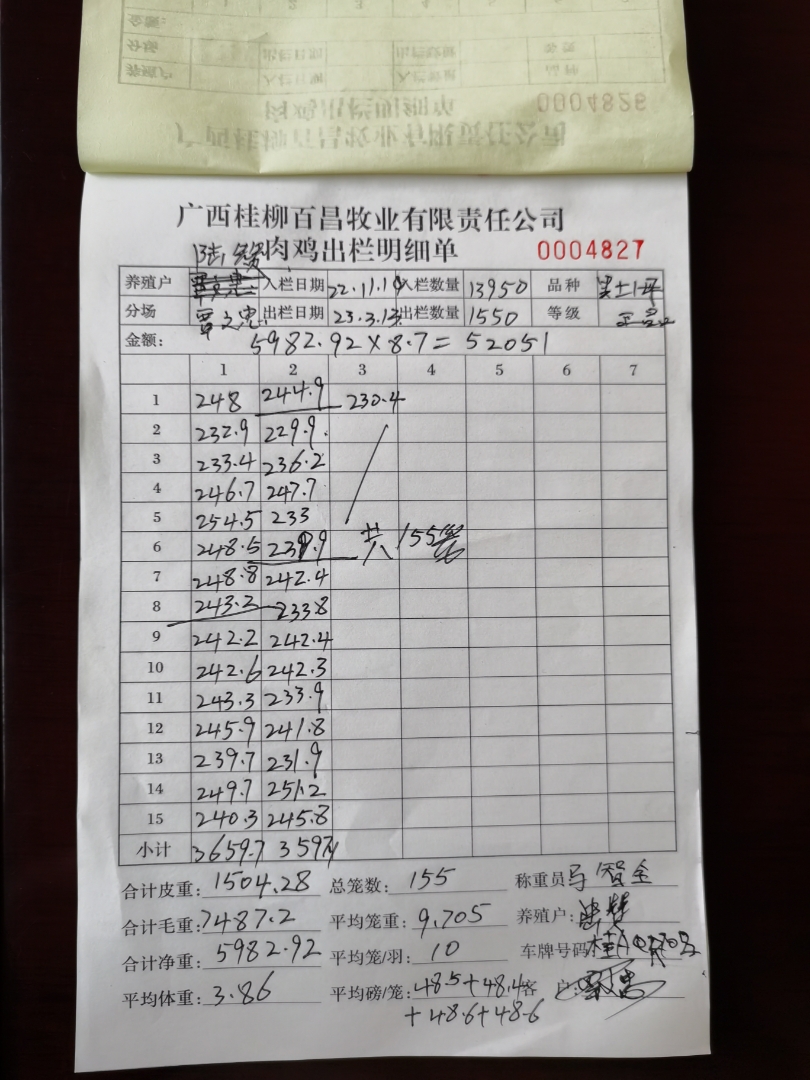 金额:
分场 出栏日期 出栏数量 等级
养殖户 入栏日期 入栏数量 品种
肉鸡出栏明细单 0004826
广西桂柳百昌牧业有限责任公司
广西桂柳百昌牧业有限责任公司
肉鸡出栏明细单 0004827
养殖户 入栏日期 22.11.19 入栏数量 13950 品种
分场 覃文忠 出栏日期 23.3.13 出栏数量 1550 等级 正品
金额: 5982.92×8.7=52051
1 2 3 4 5 6 7
1 248 244.9 230.4
2 232.9 229.9
3 233.4 236.2
4 246.7 247.7
5 254.5 233
6 248.5 239.9 共155笼
7 248.8 242.4
8 243.2 233.8
9 242.2 242.4
10 242.6 242.3
11 243.3 233.9
12 245.9 241.8
13 239.7 231.9
14 249.7 251.2
15 240.3 245.8
小计 3659.7 3597.1
合计皮重: 1504.28 总笼数: 155 称重员 马智全
合计毛重: 7487.2 平均笼重: 9.705 养殖户:
合计净重: 5982.92 平均笼/羽: 10 车牌号码: 桂A
平均体重: 3.86 平均磅/笼: 48.5+48.4 客户:
+48.6+48.6